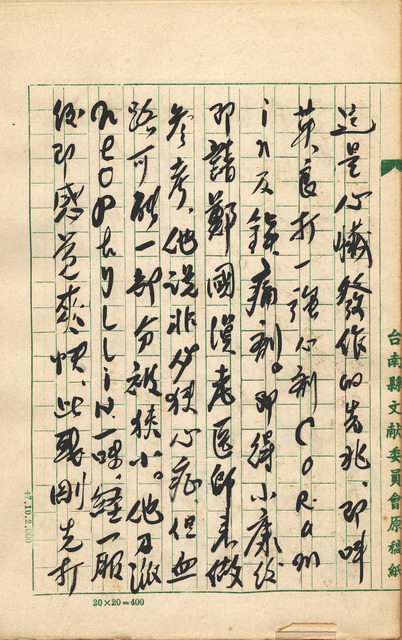 這是心臟發作的先兆,即呼
英良打一強心劑Coram
in及鎮痛劑。即得小康,
即請鄭國漢老医師來做
參考,他說非必狹心症,但血
路可能一部分被狹小。他乃派
Neophyllin一味,經一服
後即感覺爽快,此剛先打
台南縣文献委員會原稿紙
47.10.2,000
20×20=400